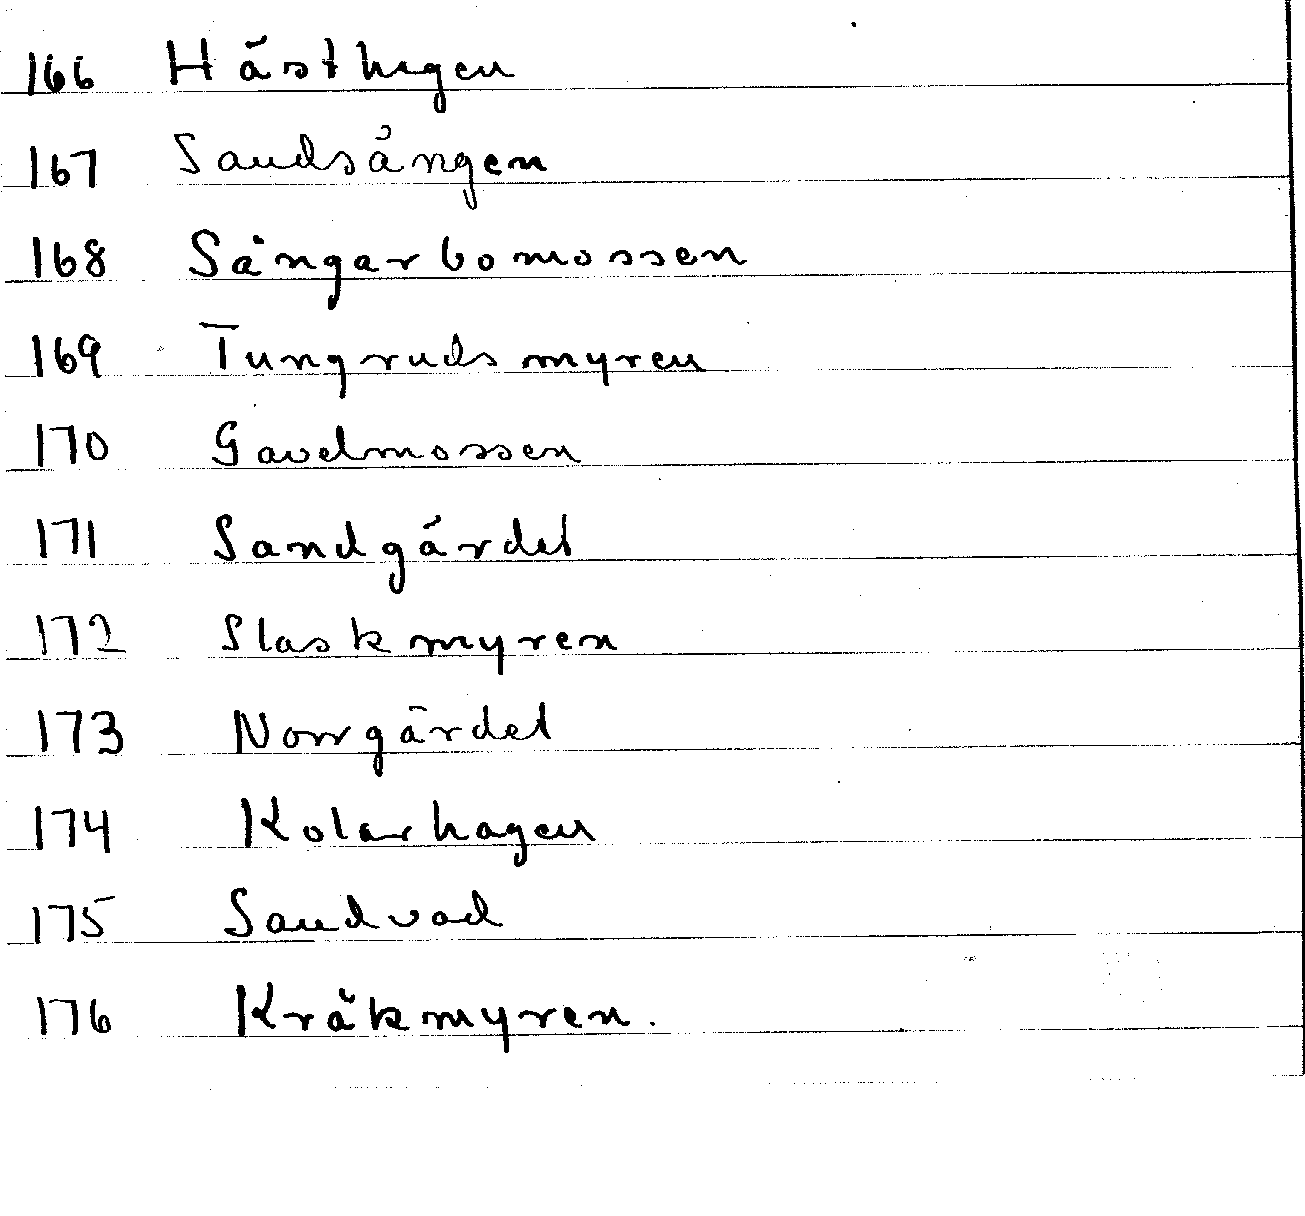 166 Hästhagen
167 Sandsängen
168 Sångarbomossen
169 Tungrudsmyren
170 Gavelmossen
171 Sandgärdet
172 Slaskmyren
173 Norrgärdet
174 Kolarhagen
175 Sandvad
176 Kråkmyren.